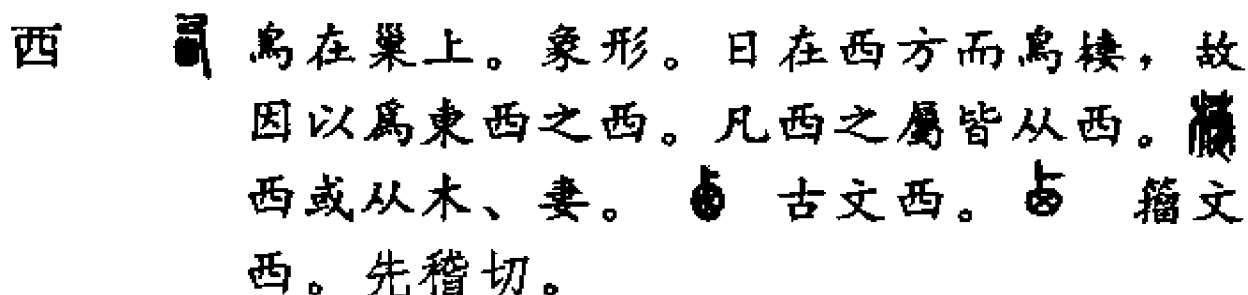 西 鳥在巢上。象形。日在西方而鳥棲，故
因以爲東西之西。凡西之屬皆从西。
西或从木、妻。 古文西。 籒文
西。先稽切。